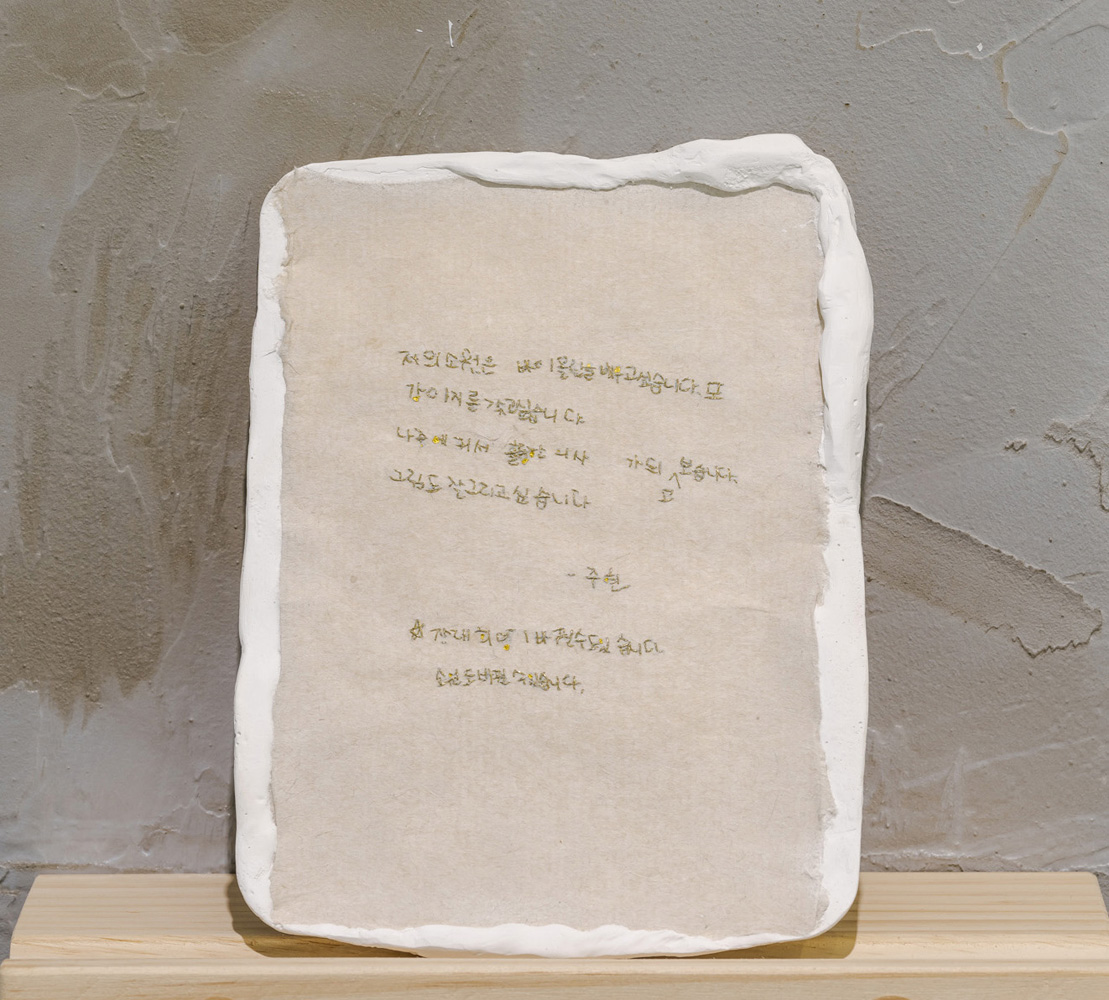 저의 소원은 바이올린을 배우고싶습니다. 또
강아지를 갖고싶습니다
나중에 커서 훌륭한 의사 가되 보습니다.
그림도 잘그리고 싶습니다
- 주현
☆ 장래희망 1 바뀔수도있습니다
소원도바뀔 수있습니다.